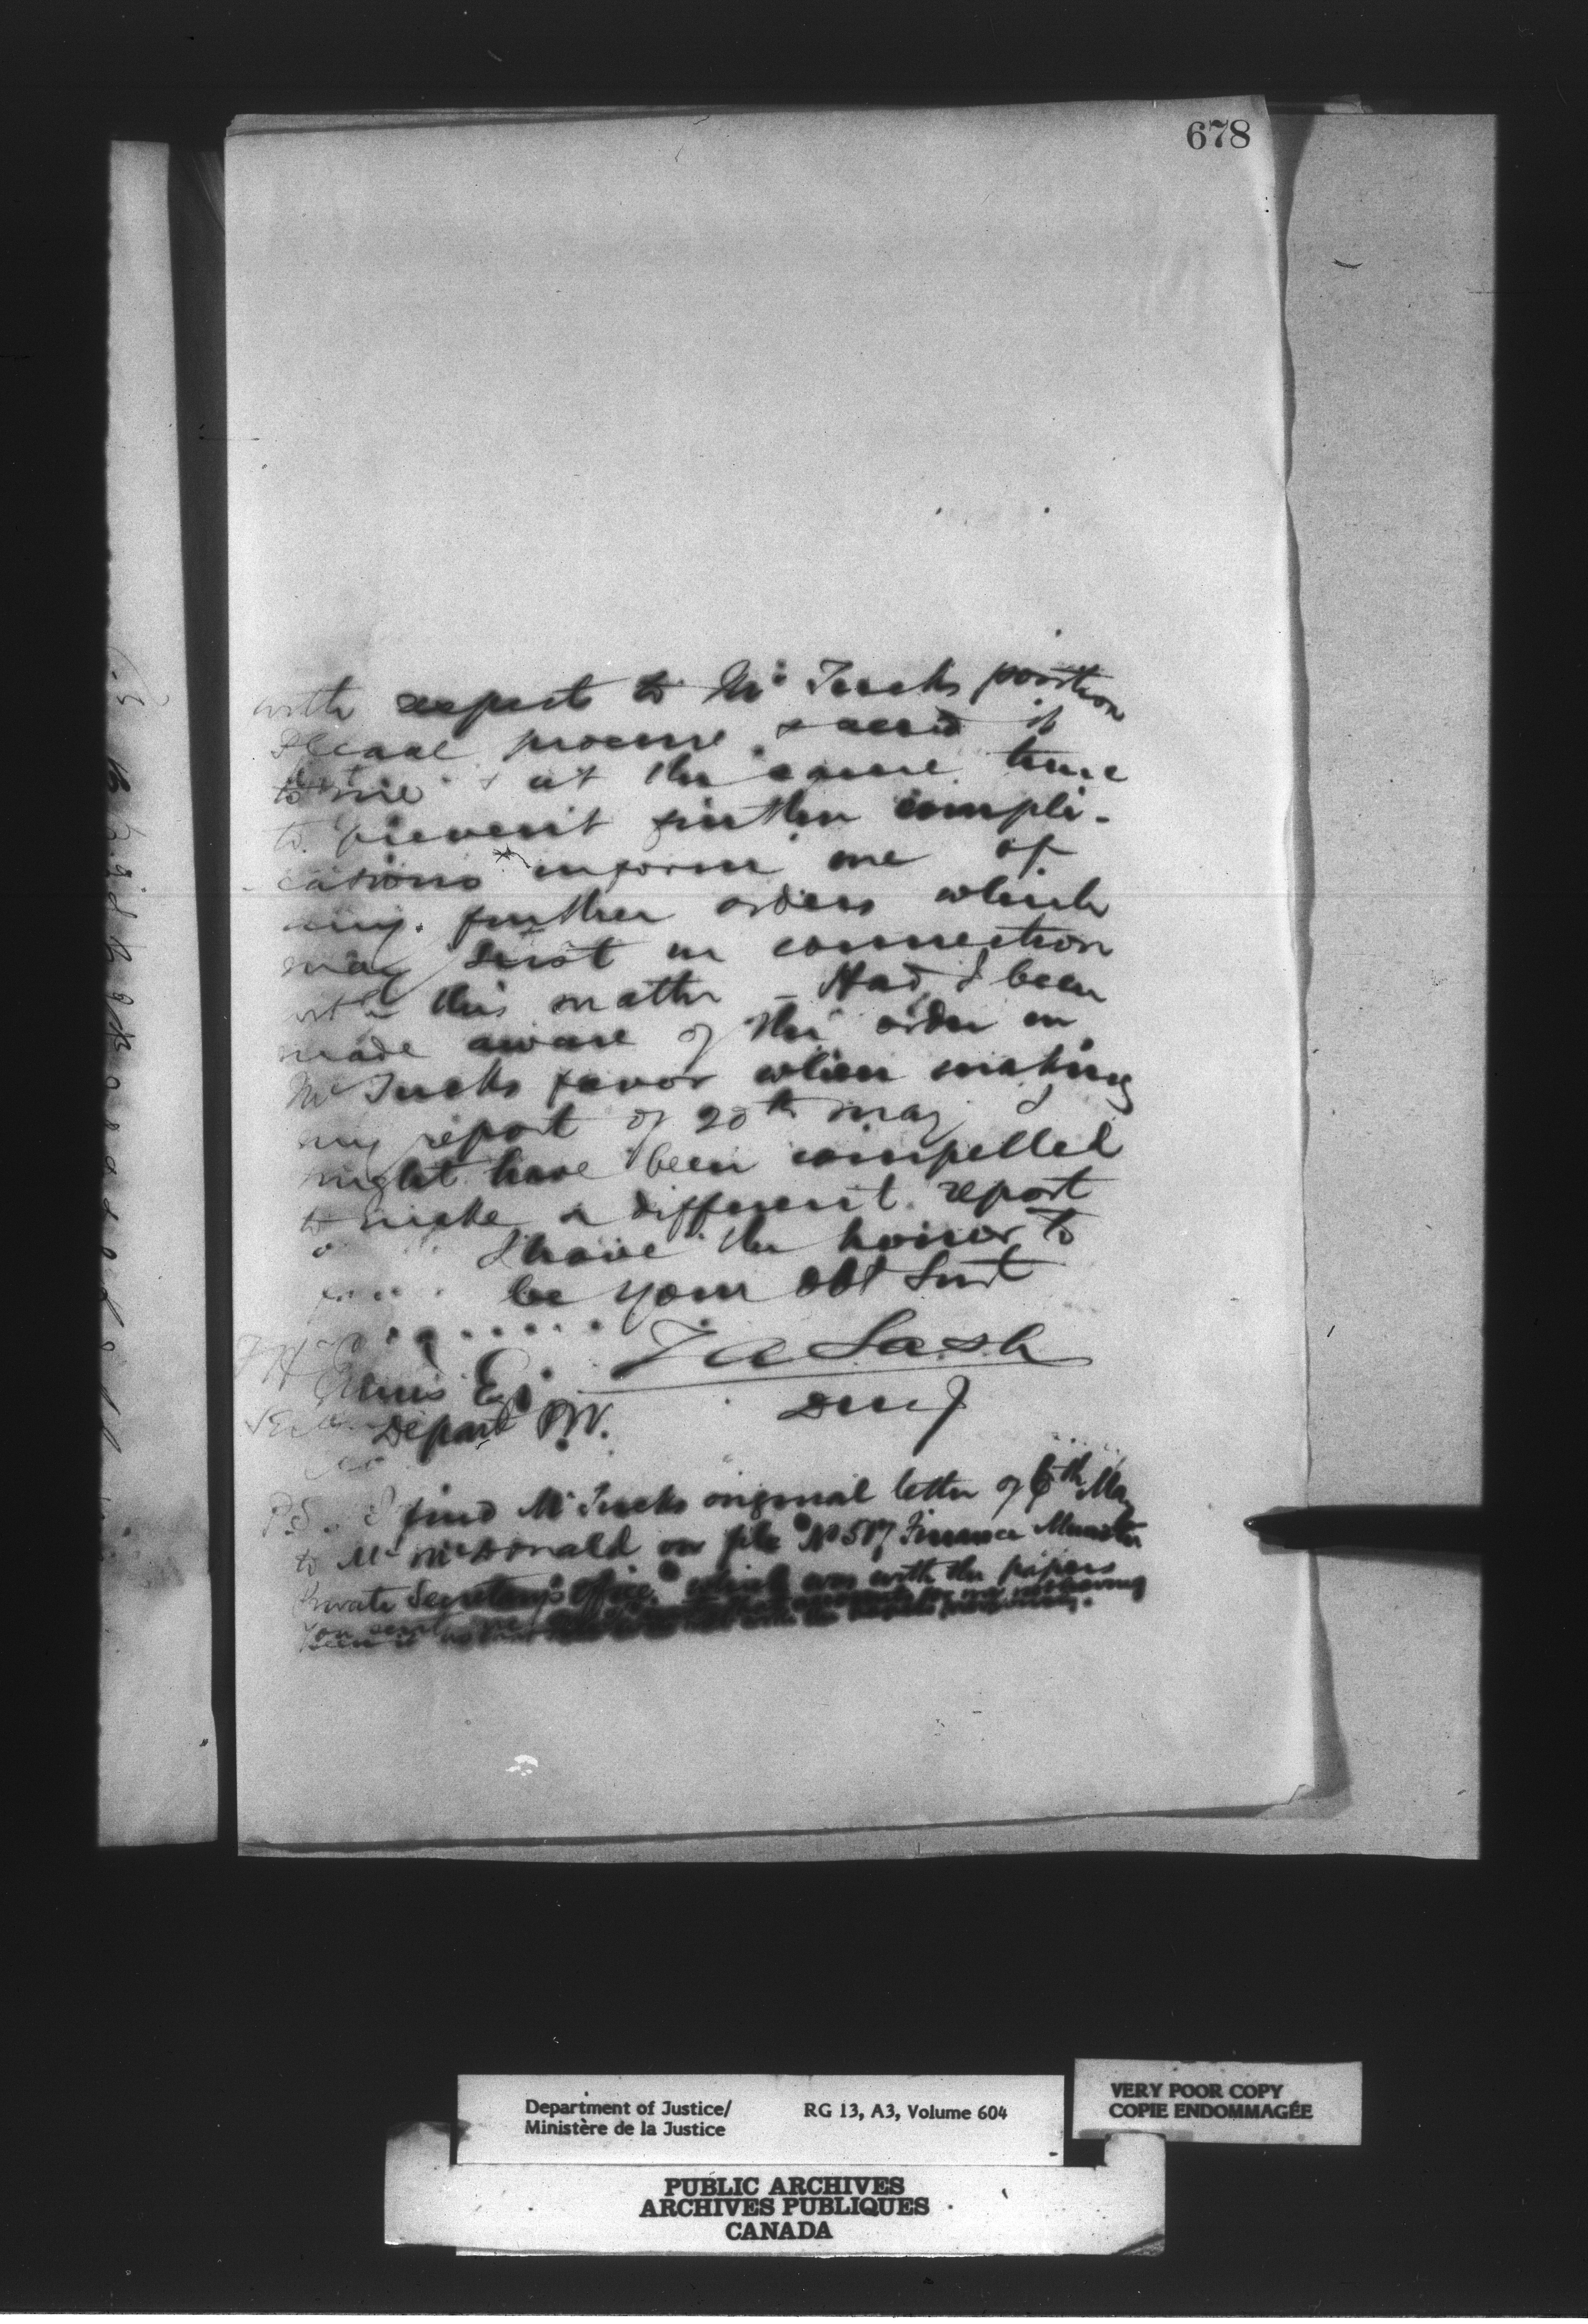 678
with respect to Mr Tucks position
Please procure & send it
to me & at the same time
to prevent further compli-
cations inform me of
any further orders which
may exist in connection
with this matter - Had I been
made aware of the order in
Mr Tucks favor when making
my report of 20th May I
might have been compelled
to make a different report
I have the honor to
be your obt Servt
Z A Lash
DMJ
F H Ennis Esq
Depart P.W.
P.S. I find Mr Tucks original letter of 6th May
to Mr McDonald on file No 517 Finance Minister
Private Secretary's Office which was with the papers
you sent me
Department of Justice/
Ministère de la Justice
RG 13, A3, Volume 604
VERY POOR COPY
COPIE ENDOMMAGÉE
PUBLIC ARCHIVES
ARCHIVES PUBLIQUES
CANADA